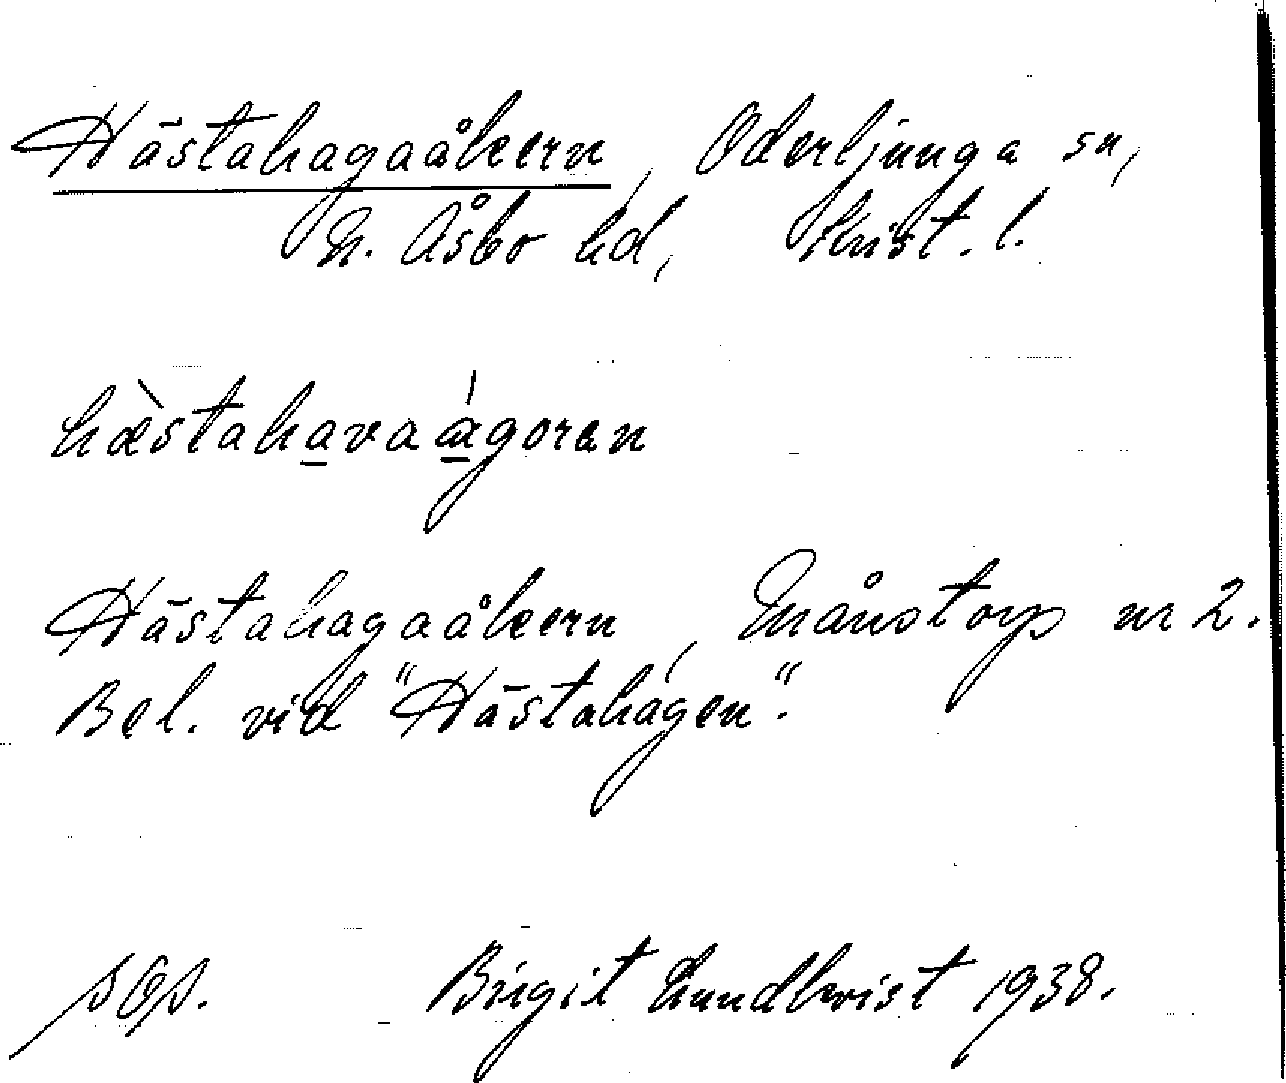 Hästahagaåkern, Oderljunga sn,
N. Åsbo hd, Krist. l.
hæ̀stahavaágoran
Hästahagaåkern, Månstorp nr 2.
Bel. vid "Hästahagen".
Birgit Lundkvist 1938.